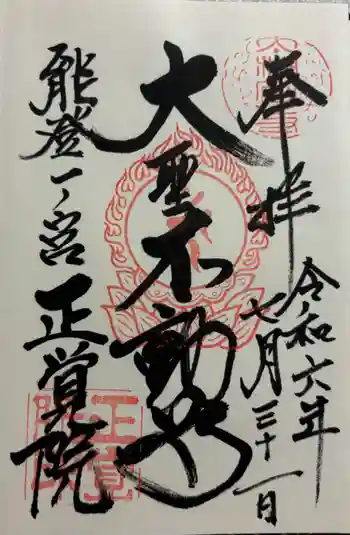 奉拝
令和六年
七月三十一日
大聖不動明王
能登一ノ宮
正覚院
正覚院